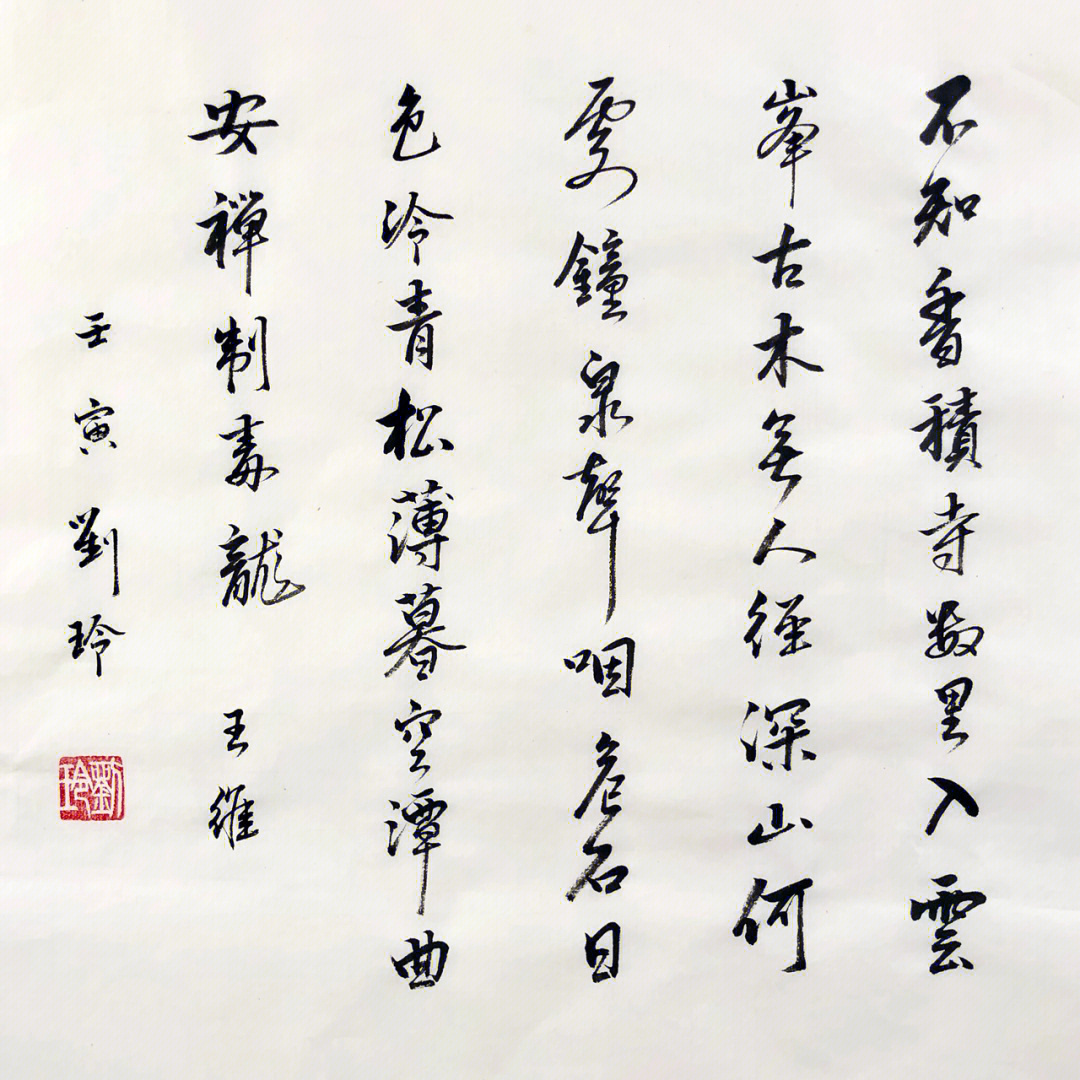 不知香積寺数里入雲
峯古木無人徑深山何
處鐘泉聲咽危石日
色冷青松薄暮空潭曲
安禪制毒龍 王維
壬寅 劉玲
劉玲